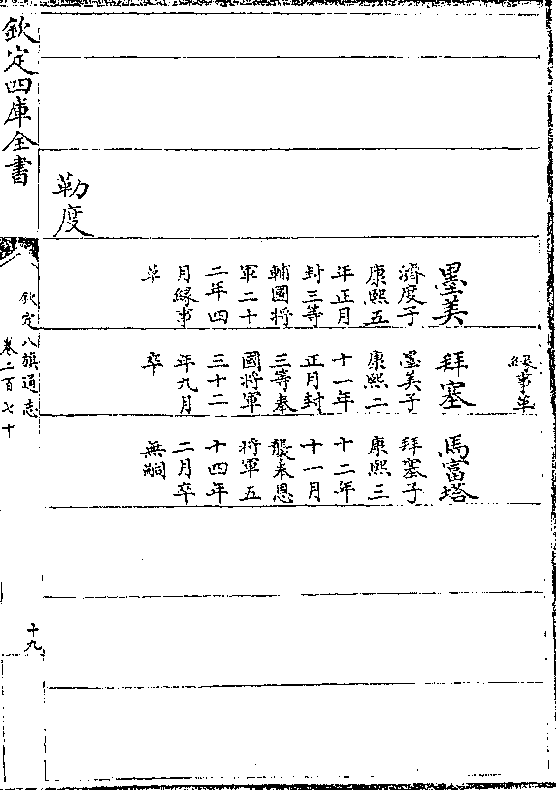 緣事革
墨美
濟度子
康熙五
年正月
封三等
輔國將
軍二十
二年四
月緣事
革
拜塞
墨美子
康熙二
十一年
正月封
三等奉
國將軍
三十二
年九月
卒
馬富塔
拜塞子
康熙三
十二年
十一月
襲奉恩
將軍五
十四年
二月卒
無嗣
勒度
欽定四庫全書
欽定八旗通志
卷二百七十
十九